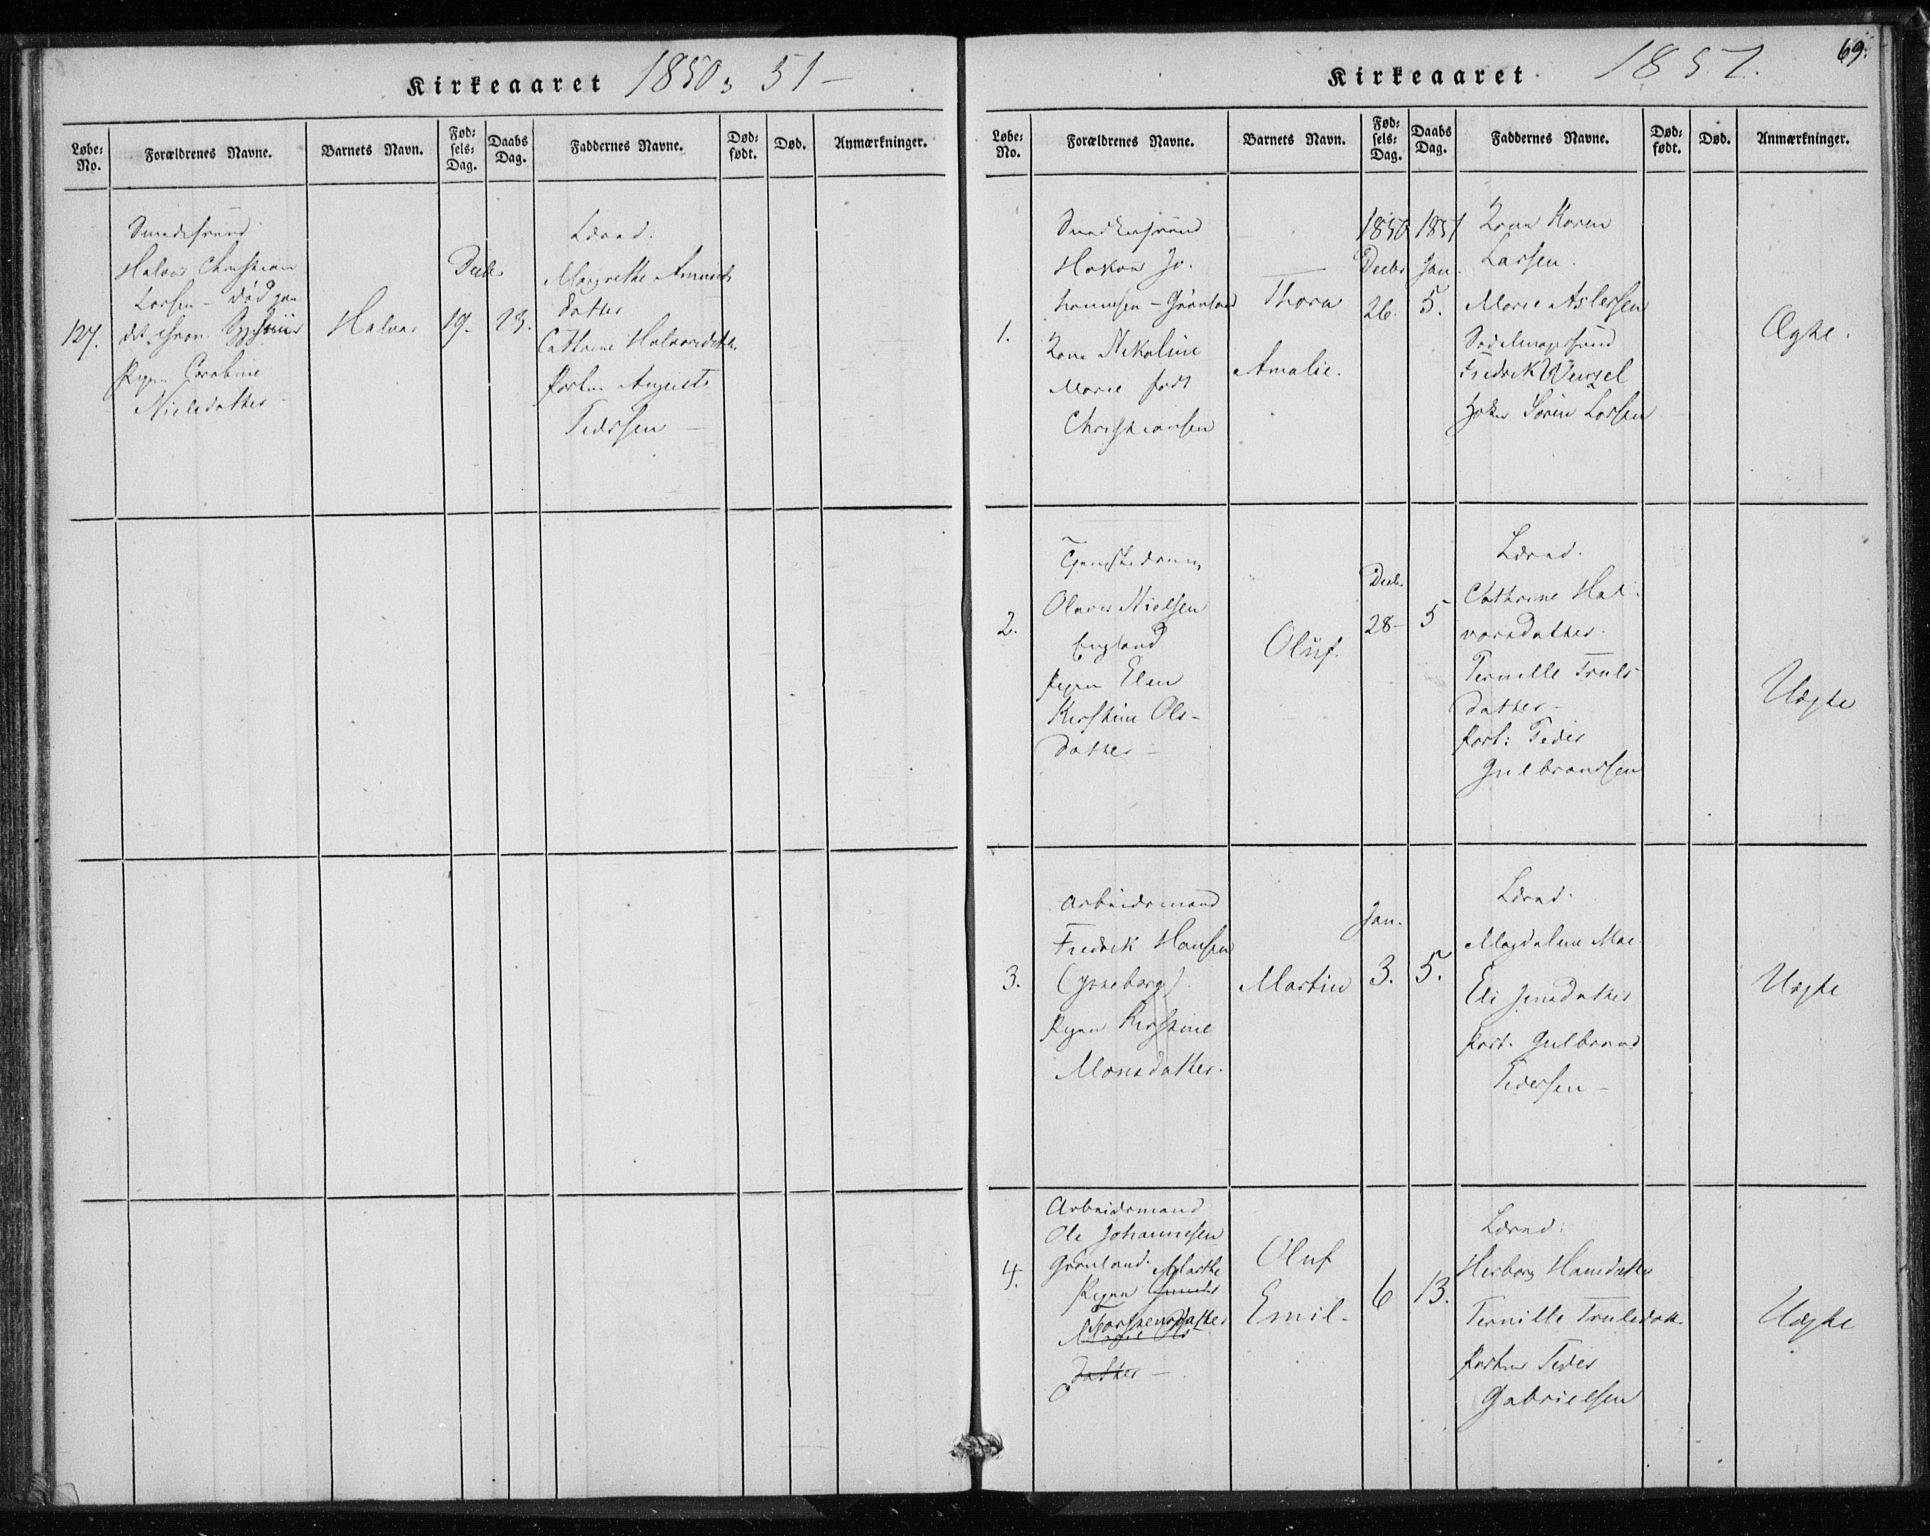 Kirkeaaret 1850 & 51 –
Løbe-No.
Forældrenes Navne.
Barnets Navn.
Fød-sels-Dag.
Daabs Dag.
Faddernes Navne.
Død-født.
Død.
Anmærkninger.
127.
Smedesvend
Halvor Christian
Larsen – død paa
Pigen
Nielsdatter
Halvor
Decbr
19.
23.
Margrethe Amunds
datter
Cathrine Halvorsdatter
Portner August
Pedersen –
69.
Kirkeaaret 1851.
Løbe-No.
Forældrenes Navne.
Barnets Navn.
Fød-sels-Dag.
Daabs Dag.
Faddernes Navne.
Død-født.
Død.
Anmærkninger.
1.
Snedkersvend
Hakon Jo-
hannesen – Grønland
Kone Nikoline
Marie født
Christiansen
Thora
Amalie.
1850
Decbr
26.
1851
Jan.
5.
Kone Karen
Larsen.
Marie Aslersen
Sadelmagersvend
Fredrik Wenzel
Søren Larsen
Ægte.
2.
Tjenestedreng
Olaves Nielsen
England
Pigen Elen
Kirstine Ols-
datter –
Oluf.
Decbr.
28–
5
Cathrine Hal-
vorsdatter.
Pernille Truls
datter –
Port: Peder
Gulbrandsen
Uægte
3.
Arbeidsmand
Fredrik Hansen
Pigen Kirstine
Monsdatter.
Martin
Jan.
3.
5.
Magdalene Moe
Eli Jensdatter
Port. Gulbrand
Pedersen –
Uægte
4.
Arbeidsmand
Ole Johannesen
Grønland.
Pigen Marthe
Torstensdatter
datter –
Oluf
Emil.
6
13.
Herborg Hansdatter
Pernille Trulsdatt.
Portner Peder
Gabrielsen
Uægte